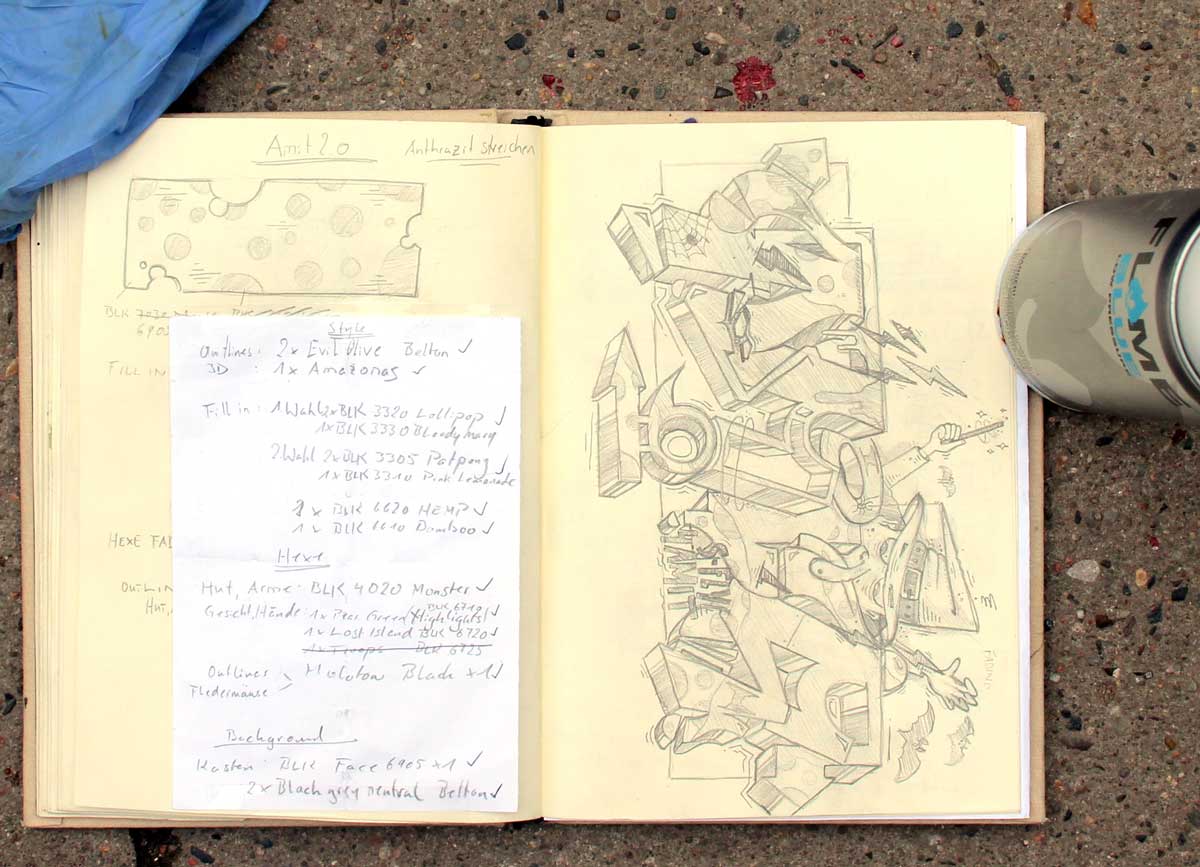 Anthrazit streichen
BLK
6905
FILL IN
HEXE
OUTLIN
HUT,
Style
Outlines: 2x Evil Olive Belton ✓
3D : 1x Amazonas ✓
Fill in: 1.Wahl 2x BLK 3320 Lollipop ✓
1x BLK 3330 Bloody mary
2.Wahl 2x BLK 3305 Patpong ✓
1x BLK 3310 Pink Lemonade
2x BLK 6620 HEMP ✓
1x BLK 6610 Bamboo ✓
Hexe
Hut, Arme: BLK 4020 Monster ✓
BLK 6710
Gesicht/Hände: 1x Peer Green (Highlights) ✓
1x Lost Island BLK 6720 ✓
1x Troops BLK 6725
Outlines Molotow Black x1 ✓
Fledermäuse
Background
Kasten: BLK Face 6905 x1 ✓
2x Black grey neutral Belton ✓
FADING
FLAME
BLUE